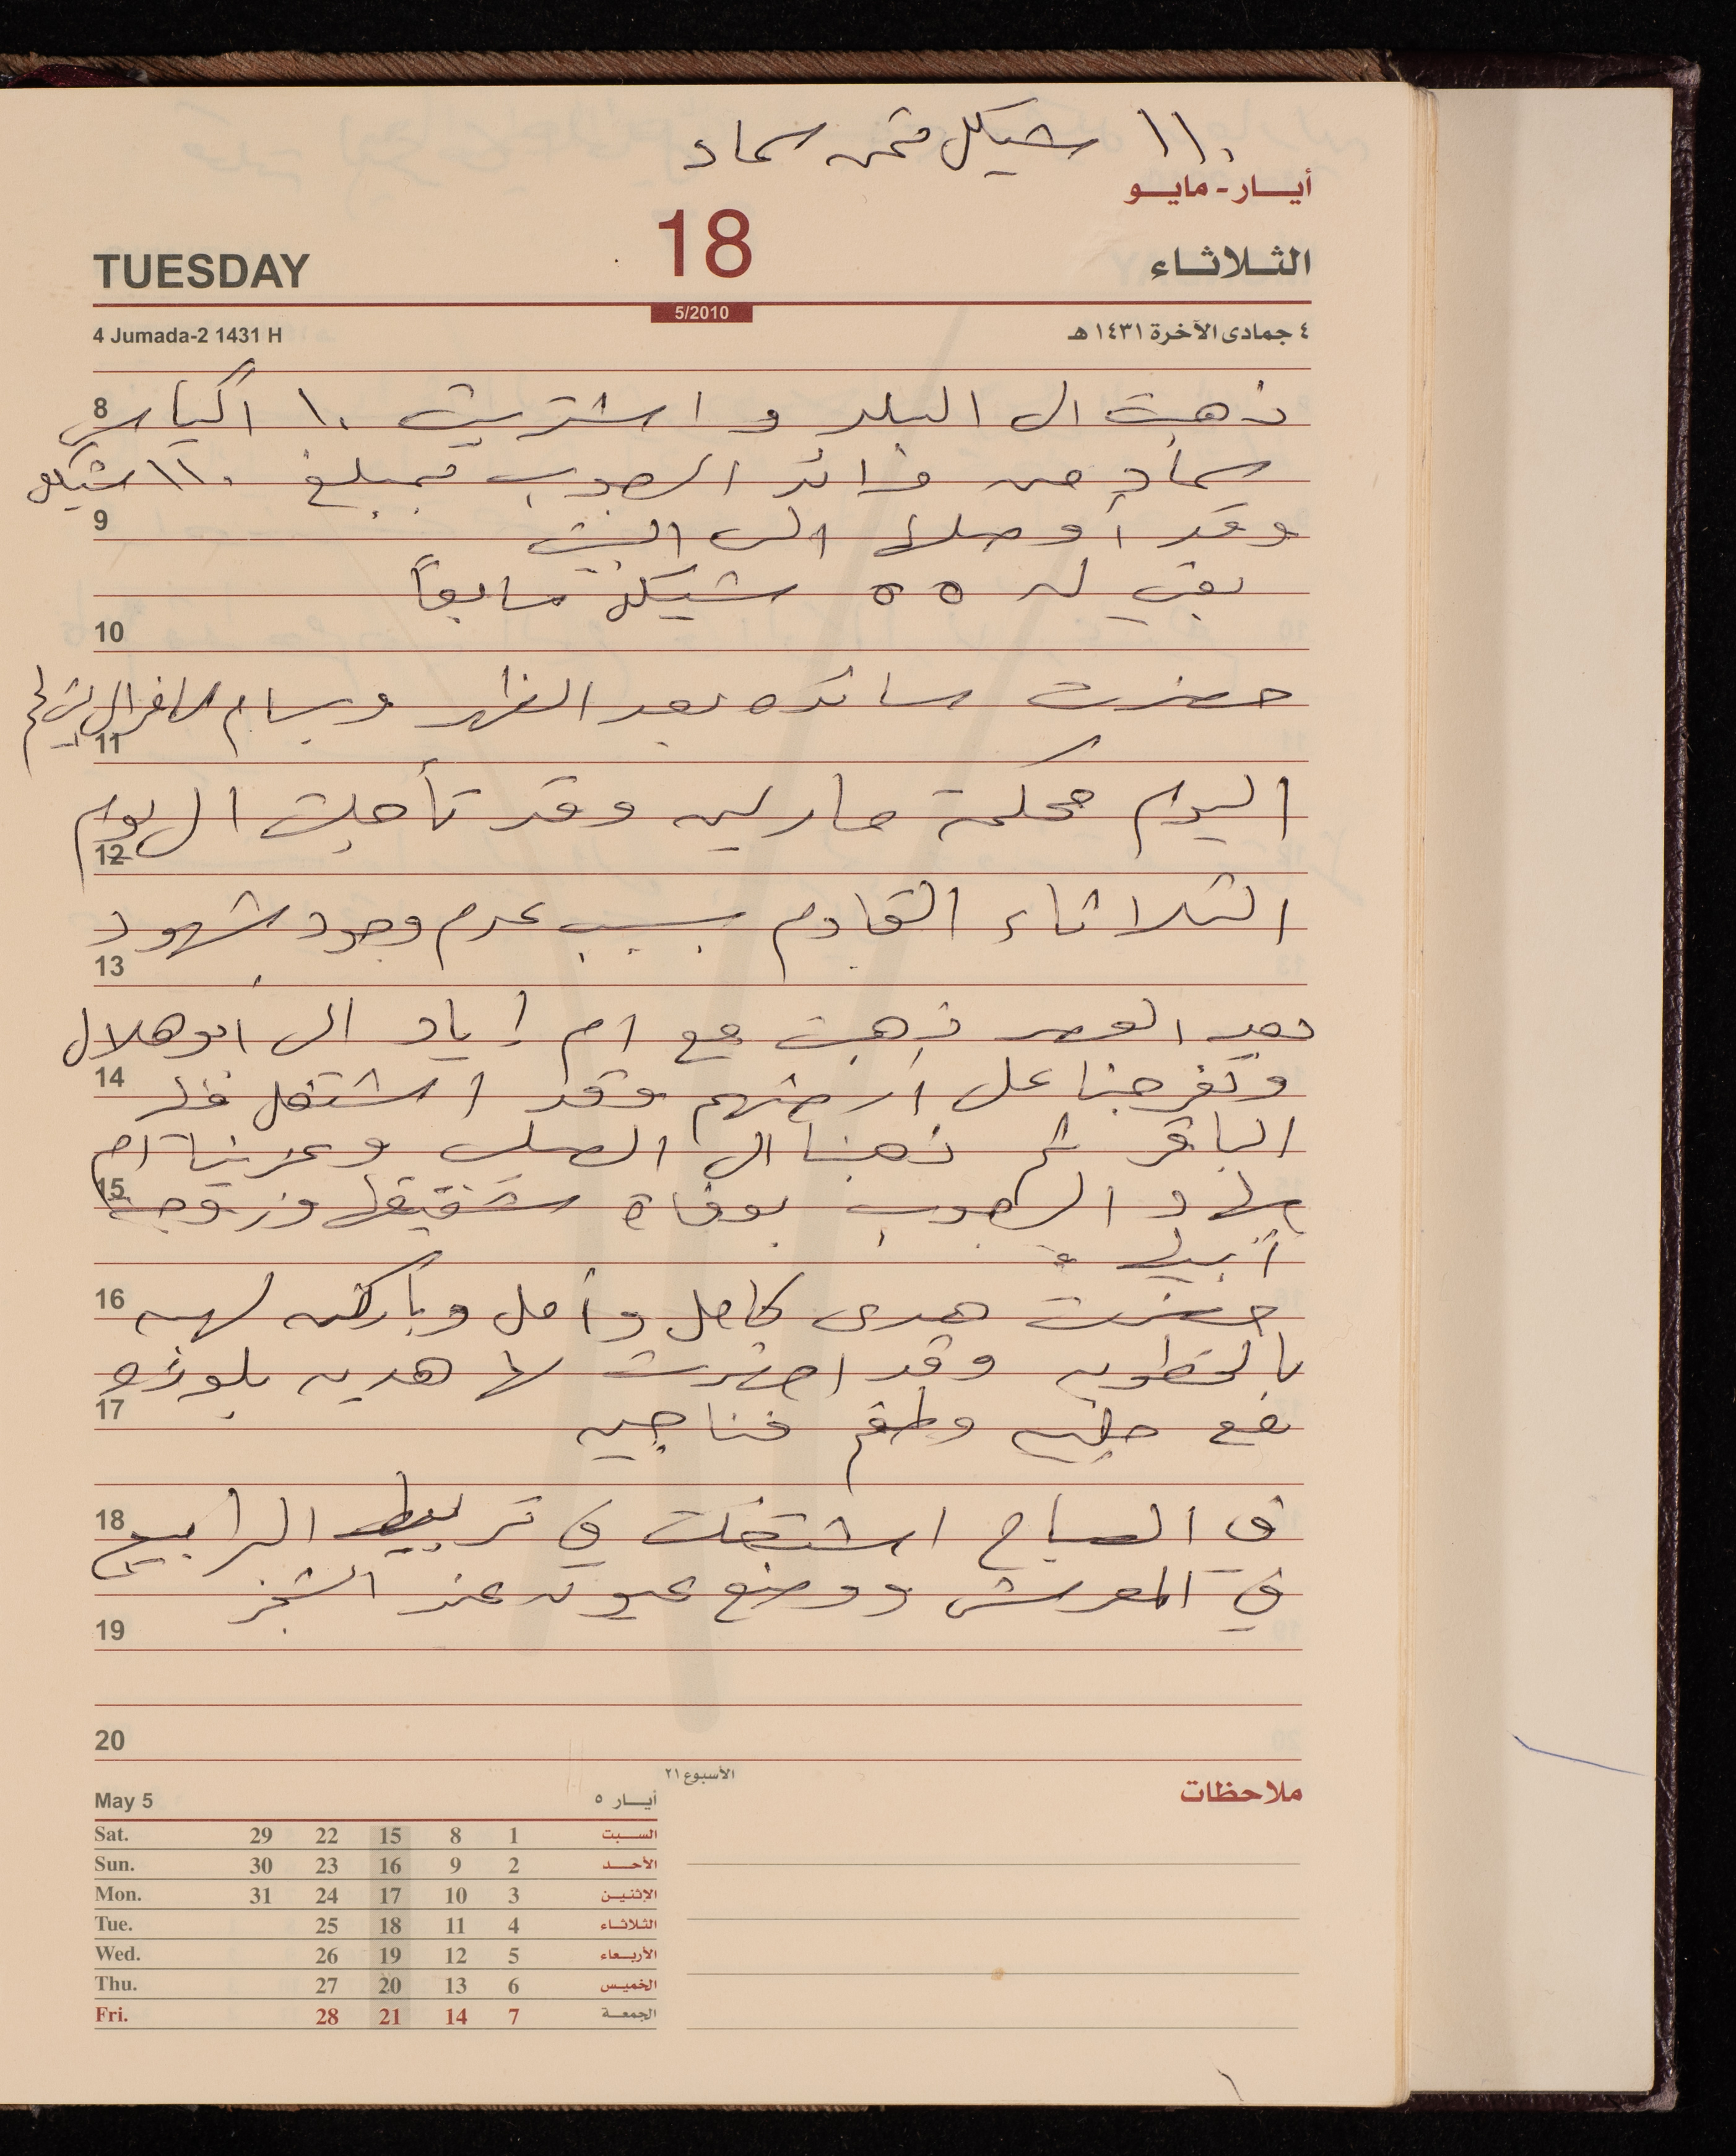 ١١٠ شيكل ثمن سماد
أيـــار - مايـــو
TUESDAY 18 الثــلاثــاء
5/2010
4 Jumada-2 1431 H ٤ جمادى الآخرة ١٤٣١ هـ
8 ذهبت الى البلد واشتريت ١٠ اكياس
سماد من فرائد الرجوب بمبلغ ١١٠ شيكل
9 وقد أوصلها الى البيت
بقي له ٥٥ شيكل سابقاً
10
حضرت سائده بعد الظهر وبسام
11
اليوم محكمة مارلين وقد تأجلت الى يوم
12
الثلاثاء القادم بسبب عدم وجود شهود
13
بعد العصر ذهبت مع ام إياد الى ابو هلال
14 وتفرجنا على ارضهم وقد اشتغل
الباقر ثم ذهبنا الى وعزينا ام
15 الرجوب بوفاة شقيقها وزوجة
أبيها
16 حضرت هدى كامل وأمل وباركن لهبه
بالخطوبه وقد احضرت لها هديه بلوزه
17 وطقم فناجين
18 في الصباح اشتغلت في تربيط المرابيع
في المعرش ووضع عيون عند الشجر
19
20
الأسبوع ٢١
ملاحظات
May 5 أيـــار ٥
Sat. 29 22 15 8 1 الســـبت
Sun. 30 23 16 9 2 الأحـــد
Mon. 31 24 17 10 3 الإثنـين
Tue. 25 18 11 4 الثلاثـاء
Wed. 26 19 12 5 الأربـعاء
Thu. 27 20 13 6 الخميـس
Fri. 28 21 14 7 الجمعـة